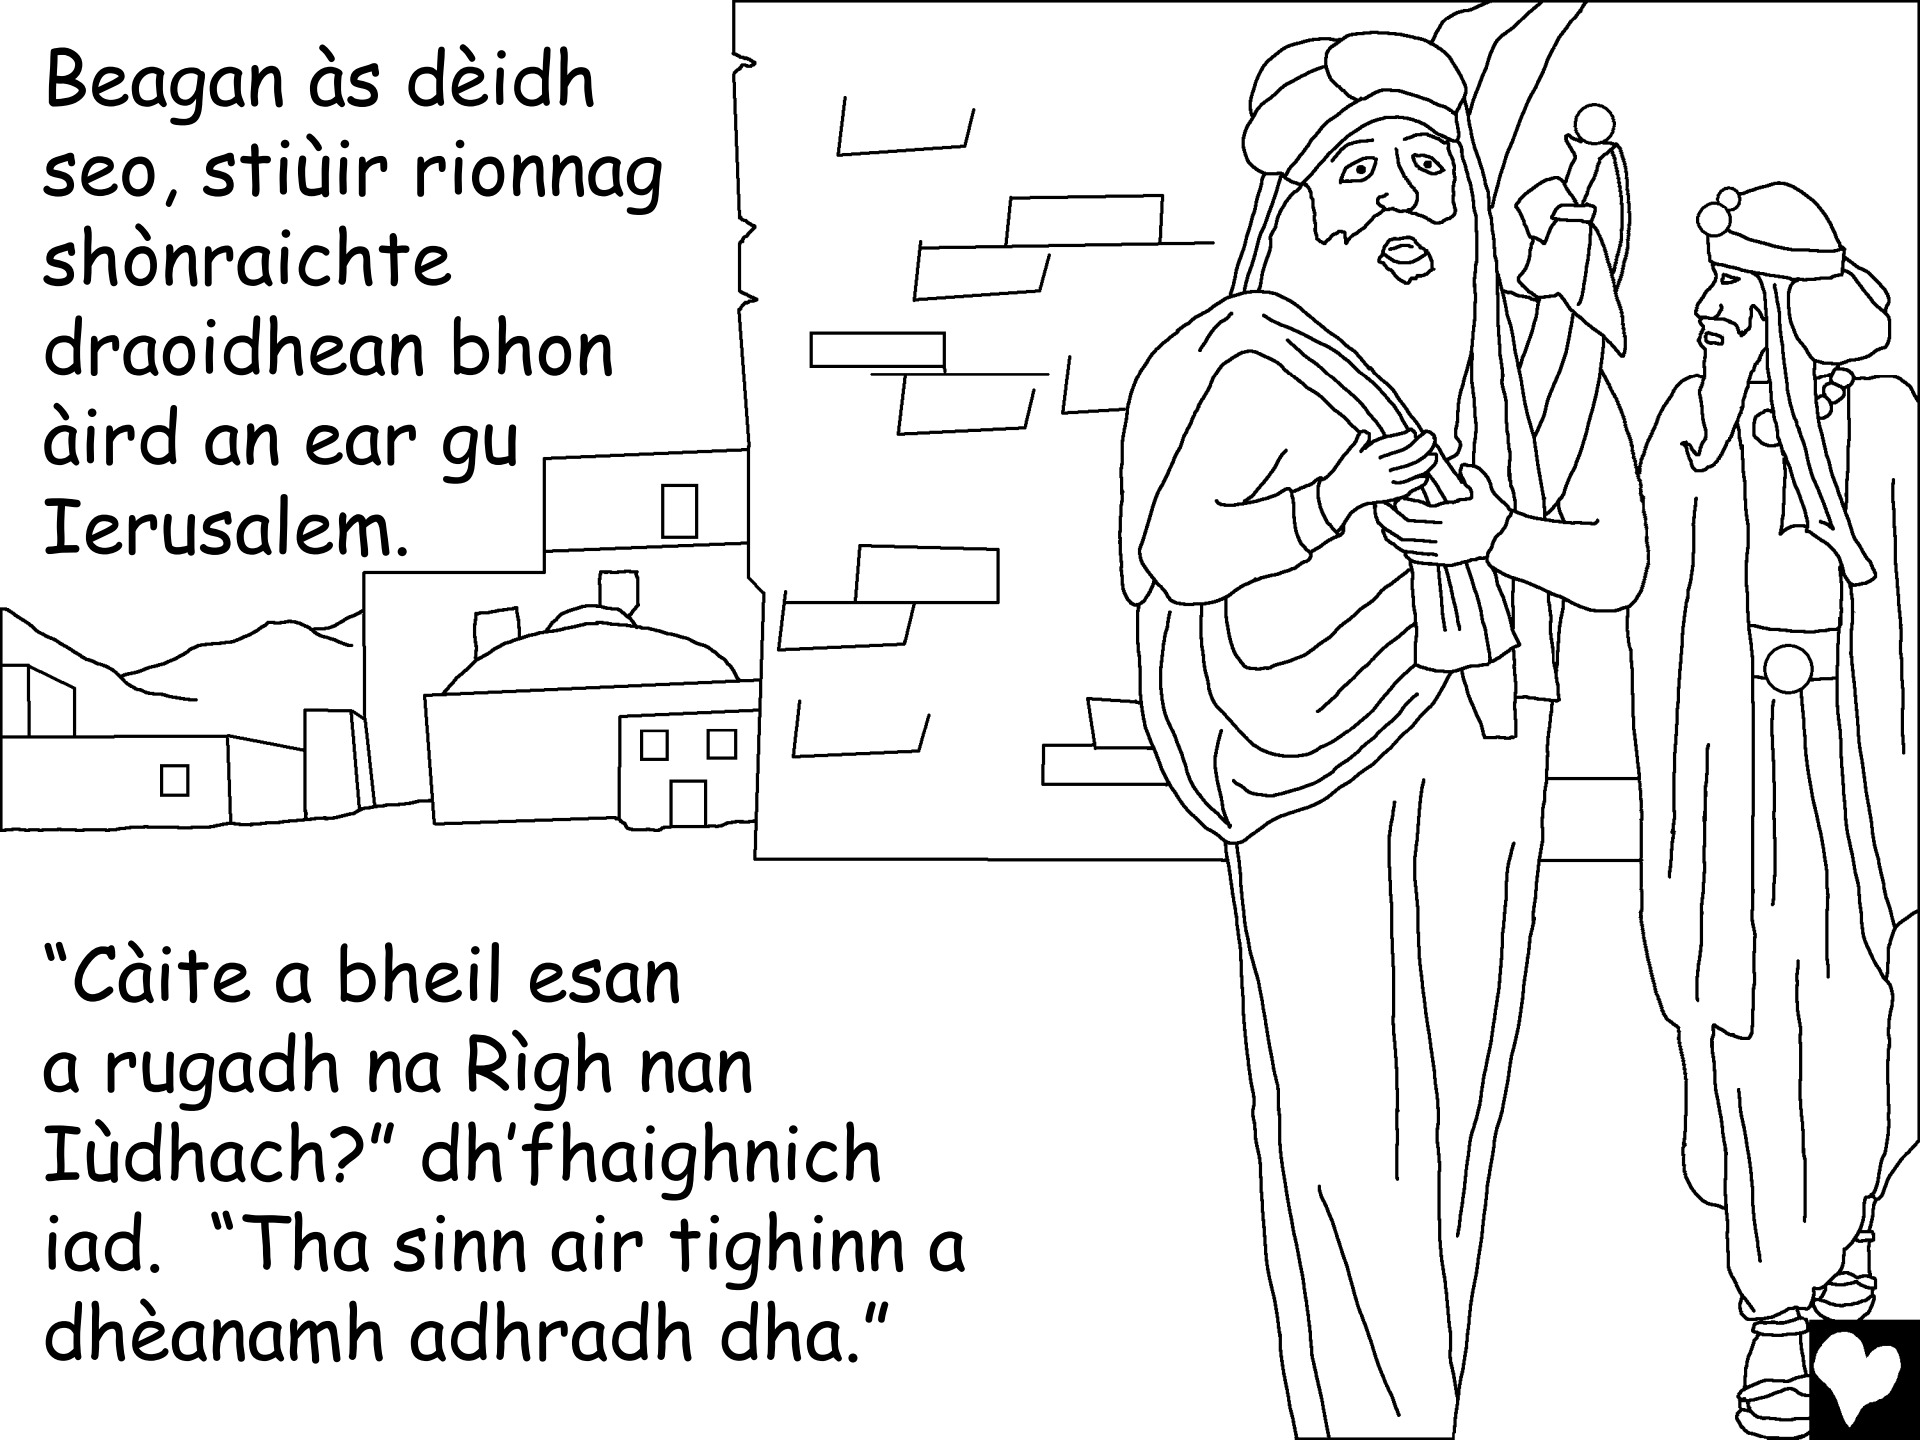 Beagan às dèidh
seo, stiùir rionnag
shònraichte
draoidhean bhon
àird an ear gu
Ierusalem.
“Càite a bheil esan
a rugadh na Rìgh nan
Iùdhach?” dh’fhaighnich
iad.  “Tha sinn air tighinn a
dhèanamh adhradh dha.”